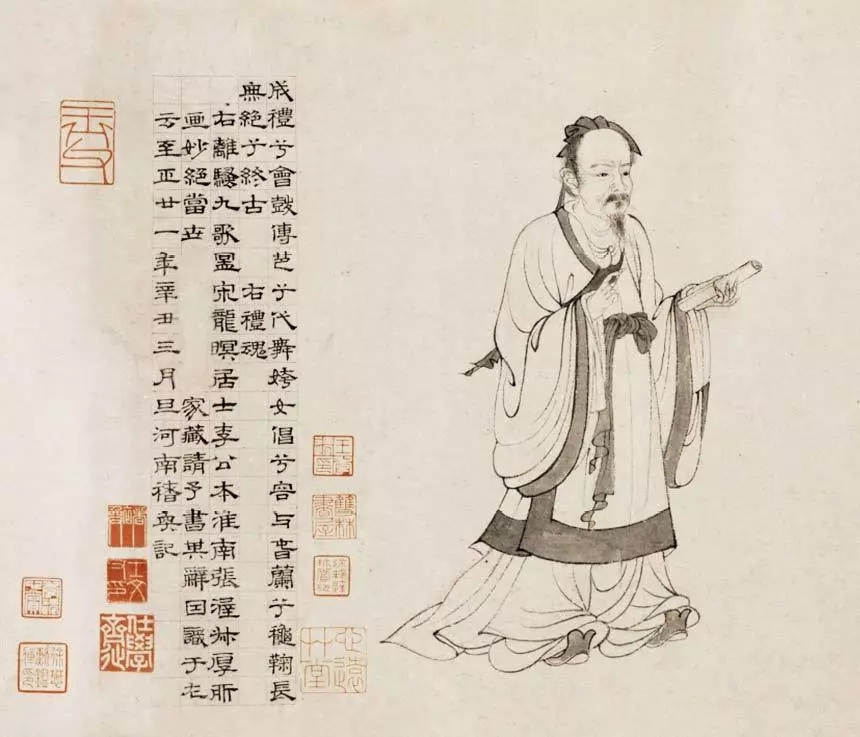 成禮兮會鼓傳芭兮代舞姱女倡兮容与春蘭兮龝鞠長
無絕兮終古　右禮魂
右離騷九歌圖宋龍暝居士李公本淮南張渥叔厚所
画妙絕當世　家藏請予書其辭囙識于左
云至正廿一年辛丑三月旦河南褚奐記
雙林書屋
心遠艸堂